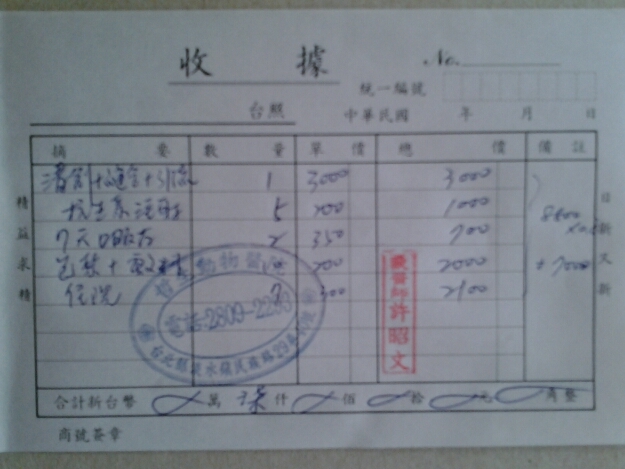 收據
No.
統一編號
台照 中華民國 年 月 日
摘要 數量 單價 總價 備註
清創+縫合+引流 1 3000 3000
抗生素注射 5 200 1000
7天口服药 2 350 700
包紮+ 10 200 2000
住院 7 300 2100
8800
+7000
精益求精
日新又新
動物醫院
電話:2809-22
台北縣淡水鎮民族路29
獸醫師許昭文
合計新台幣 萬 柒仟 佰 拾 元 角整
商號簽章